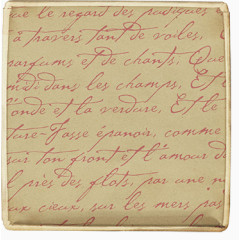 que le regard des pudiques
à travers tant de voiles,
parfums et de chants. Que
midi dans les champs, Et
l'onde et la verdure, Et le
ture Fasse épanoir, comme
sur ton front et l'amour d
près des flots, par une n
ux cieux, sur les mers pas